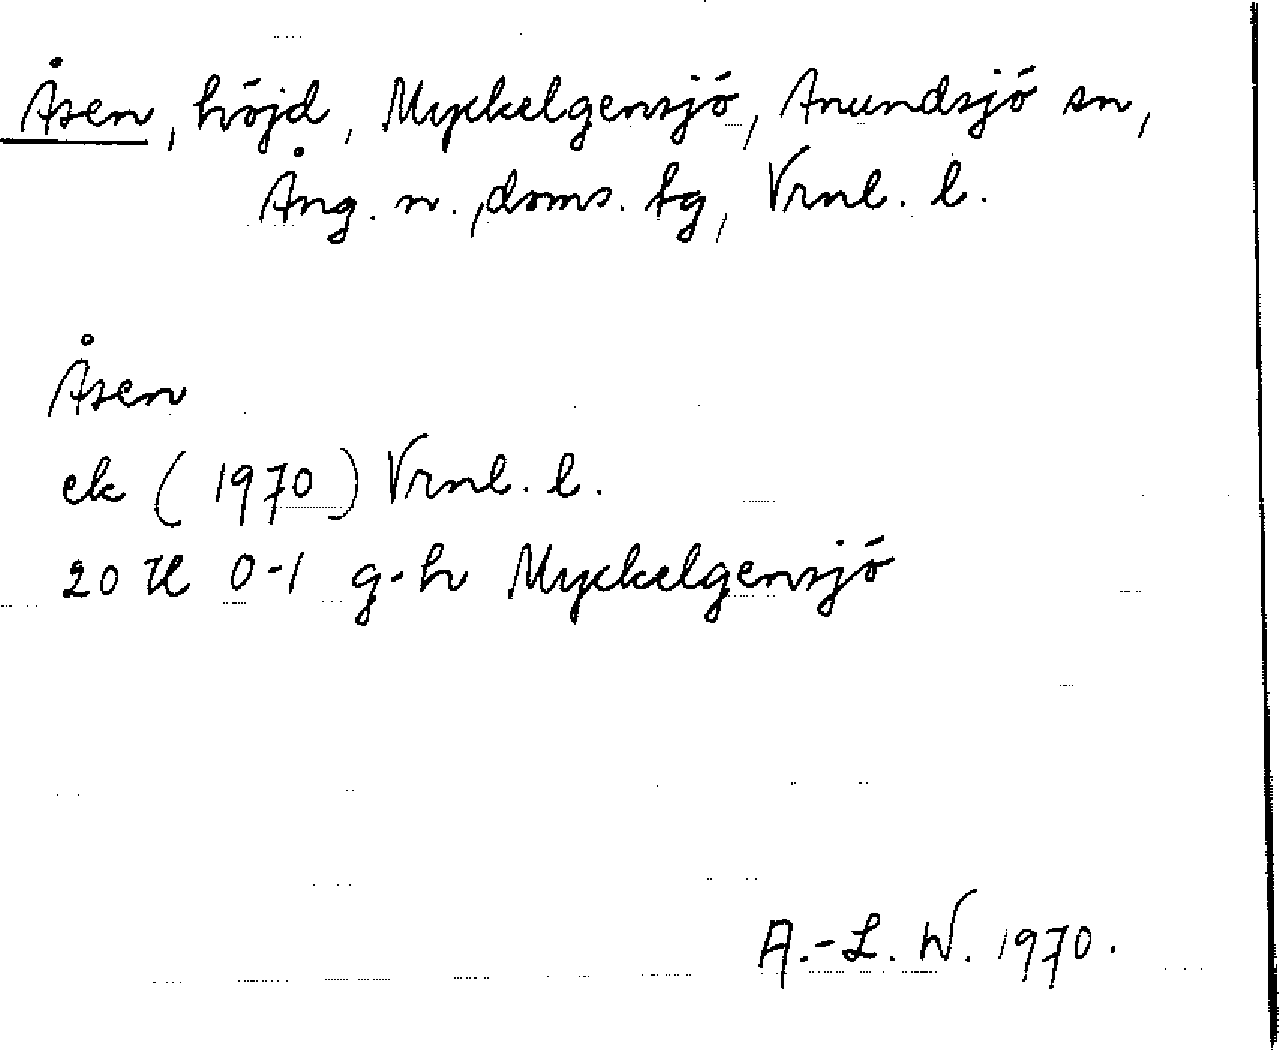 Åsen, höjd, Myckelgensjö, Anundsjö sn,
Ång. n., doms. tg, Vrnl. l.
Åsen
ek (1970) Vrnl. l.
20 H 0-1 g-h Myckelgensjö
A.-L. W. 1970.